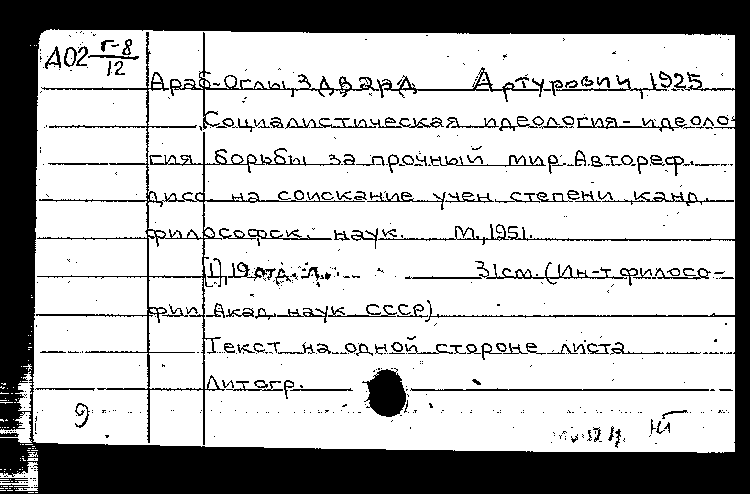 А02 Г-8
12
Араб-Оглы, Эдвард Артурович, 1925
Социалистическая идеология-идеоло-
гия борьбы за прочный мир. Автореф.
дисс. на соискание учен. степени канд.
философск. наук. М., 1951.
[1], 19 отд. л. 31см. (Ин-т филосо-
фии Акад. наук СССР).
Текст на одной стороне листа
Литогр.
9 НГ